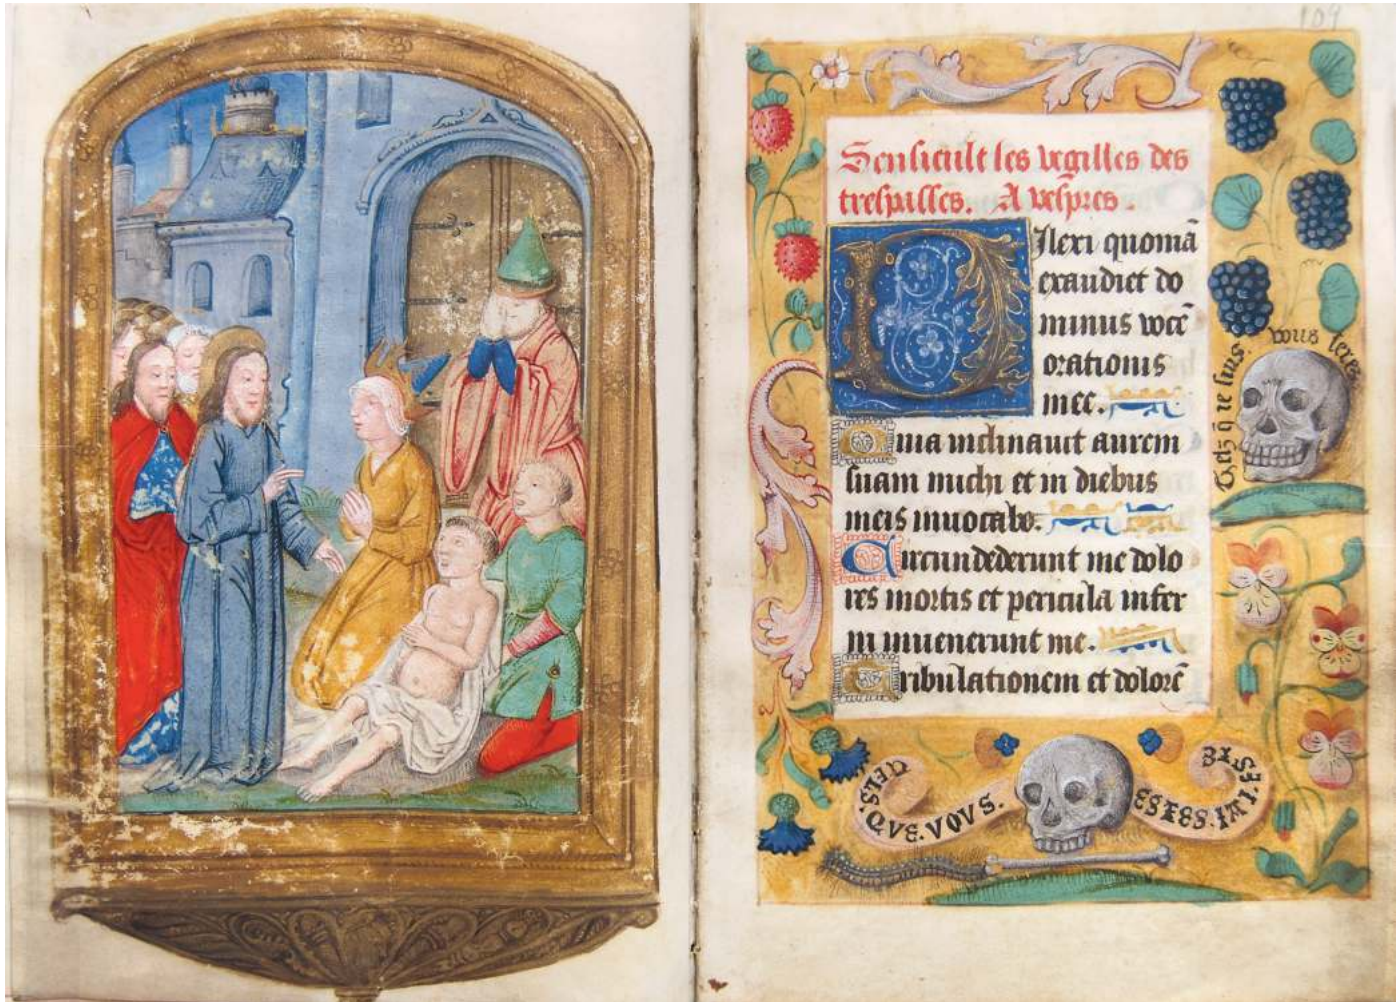 109
Sensieult les vegilles des
trespasses. A vespres.
Dilexi quoniā
exaudiet do
minus vocē
orationis
mee.
Quia inclinauit aurem
suam michi et in diebus
meis inuocabo.
Circundederunt me dolo
res mortis et pericula infer
ni inuenerunt me.
Tribulationem et dolorē
Telz q̄ ie suis. vous seres
TELS. QVE. VOVS. ESTES. IAI. ESTE